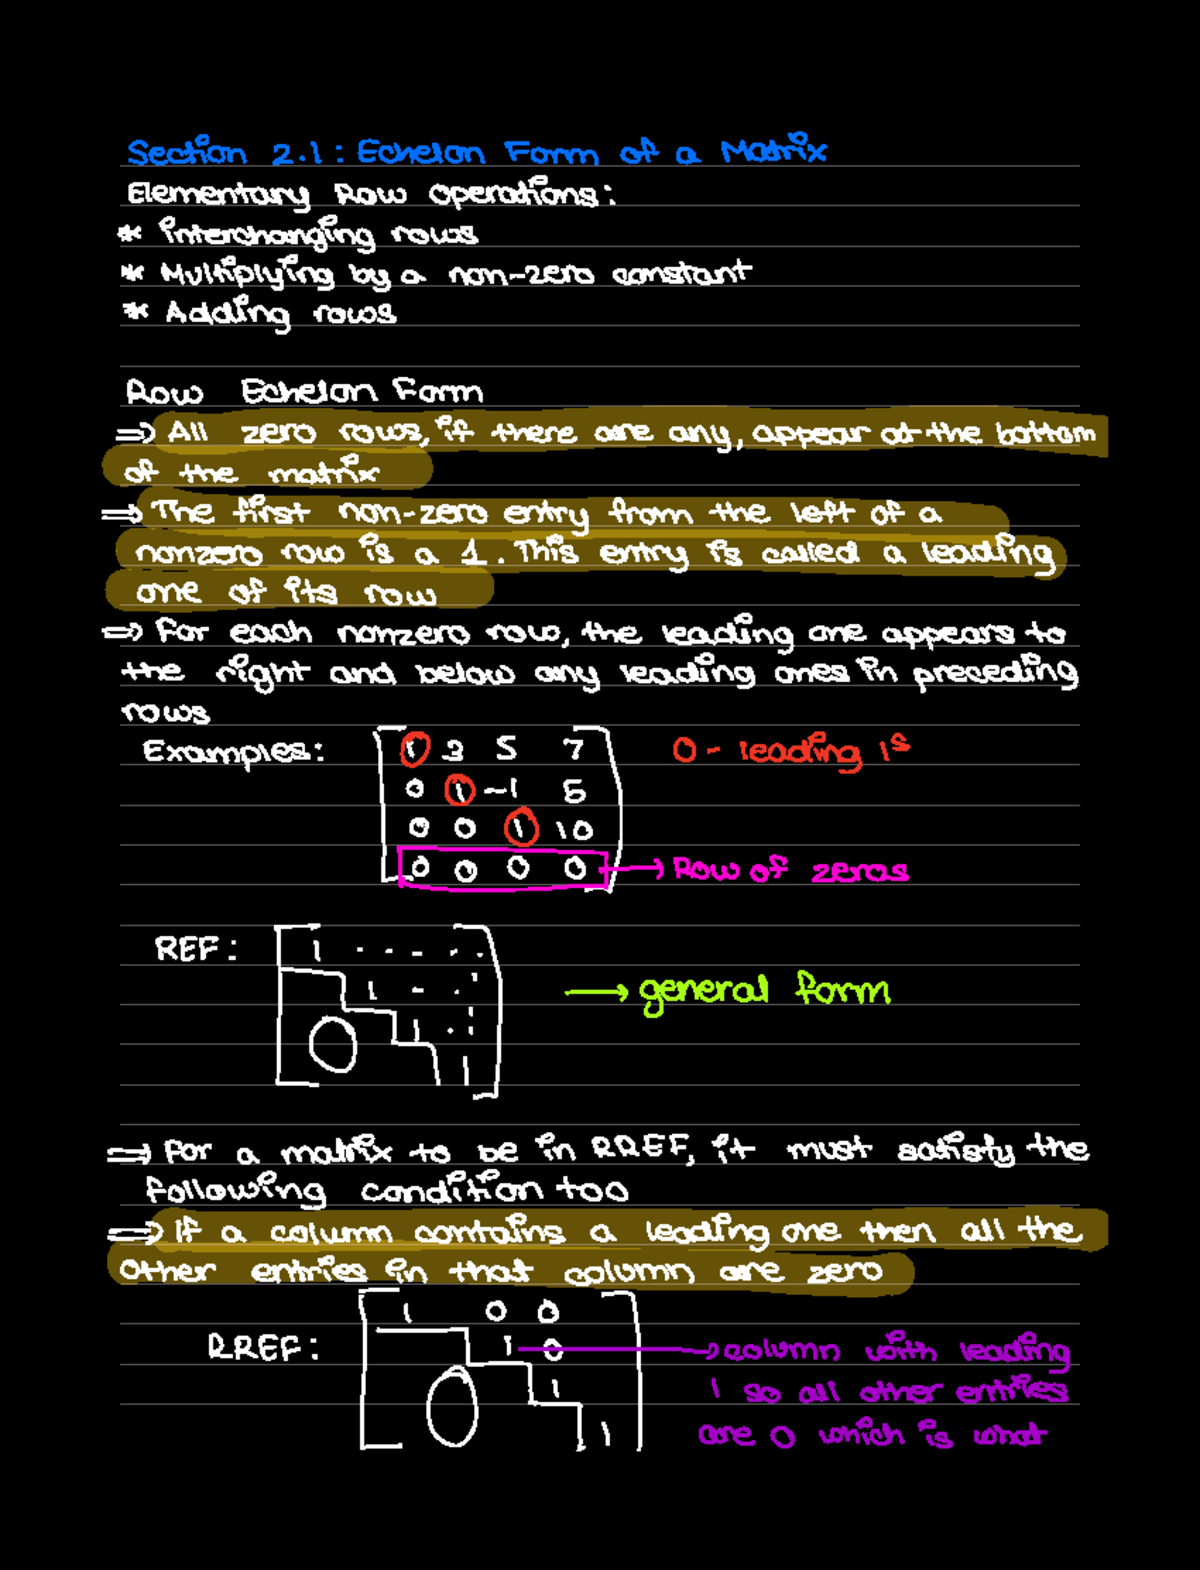 Section 2.1: Echelon Form of a Matrix
Elementary Row Operations:
* interchanging rows
* Multiplying by a non-zero constant
* Adding rows
Row Echelon Form
⇒ All zero rows, if there are any, appear at the bottom
of the matrix
⇒ The first non-zero entry from the left of a
nonzero row is a 1. This entry is called a leading
one of its row
⇒ For each nonzero row, the leading one appears to
the right and below any leading ones in preceding
rows
Examples: 1 3 5 7 O - leading 1s
0 1 -1 5
0 0 1 10
0 0 0 0 → Row of zeros
REF: 1 . . - . .
1 - . → general form
1 .
0 1
⇒ For a matrix to be in RREF, it must satisfy the
following condition too
⇒ If a column contains a leading one then all the
other entries in that column are zero
1 0 0
RREF: 1 0 → column with leading
0 1 1 so all other entries
1 are 0 which is what